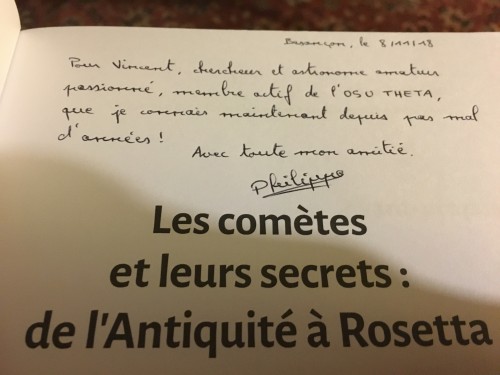 Besançon, le 8/11/18
Pour Vincent, chercheur et astronome amateur
passionné, membre actif de l'OSU THETA,
que je connais maintenant depuis pas mal
d'années !
Avec toute mon amitié.
Philippe
Les comètes
et leurs secrets :
de l'Antiquité à Rosetta